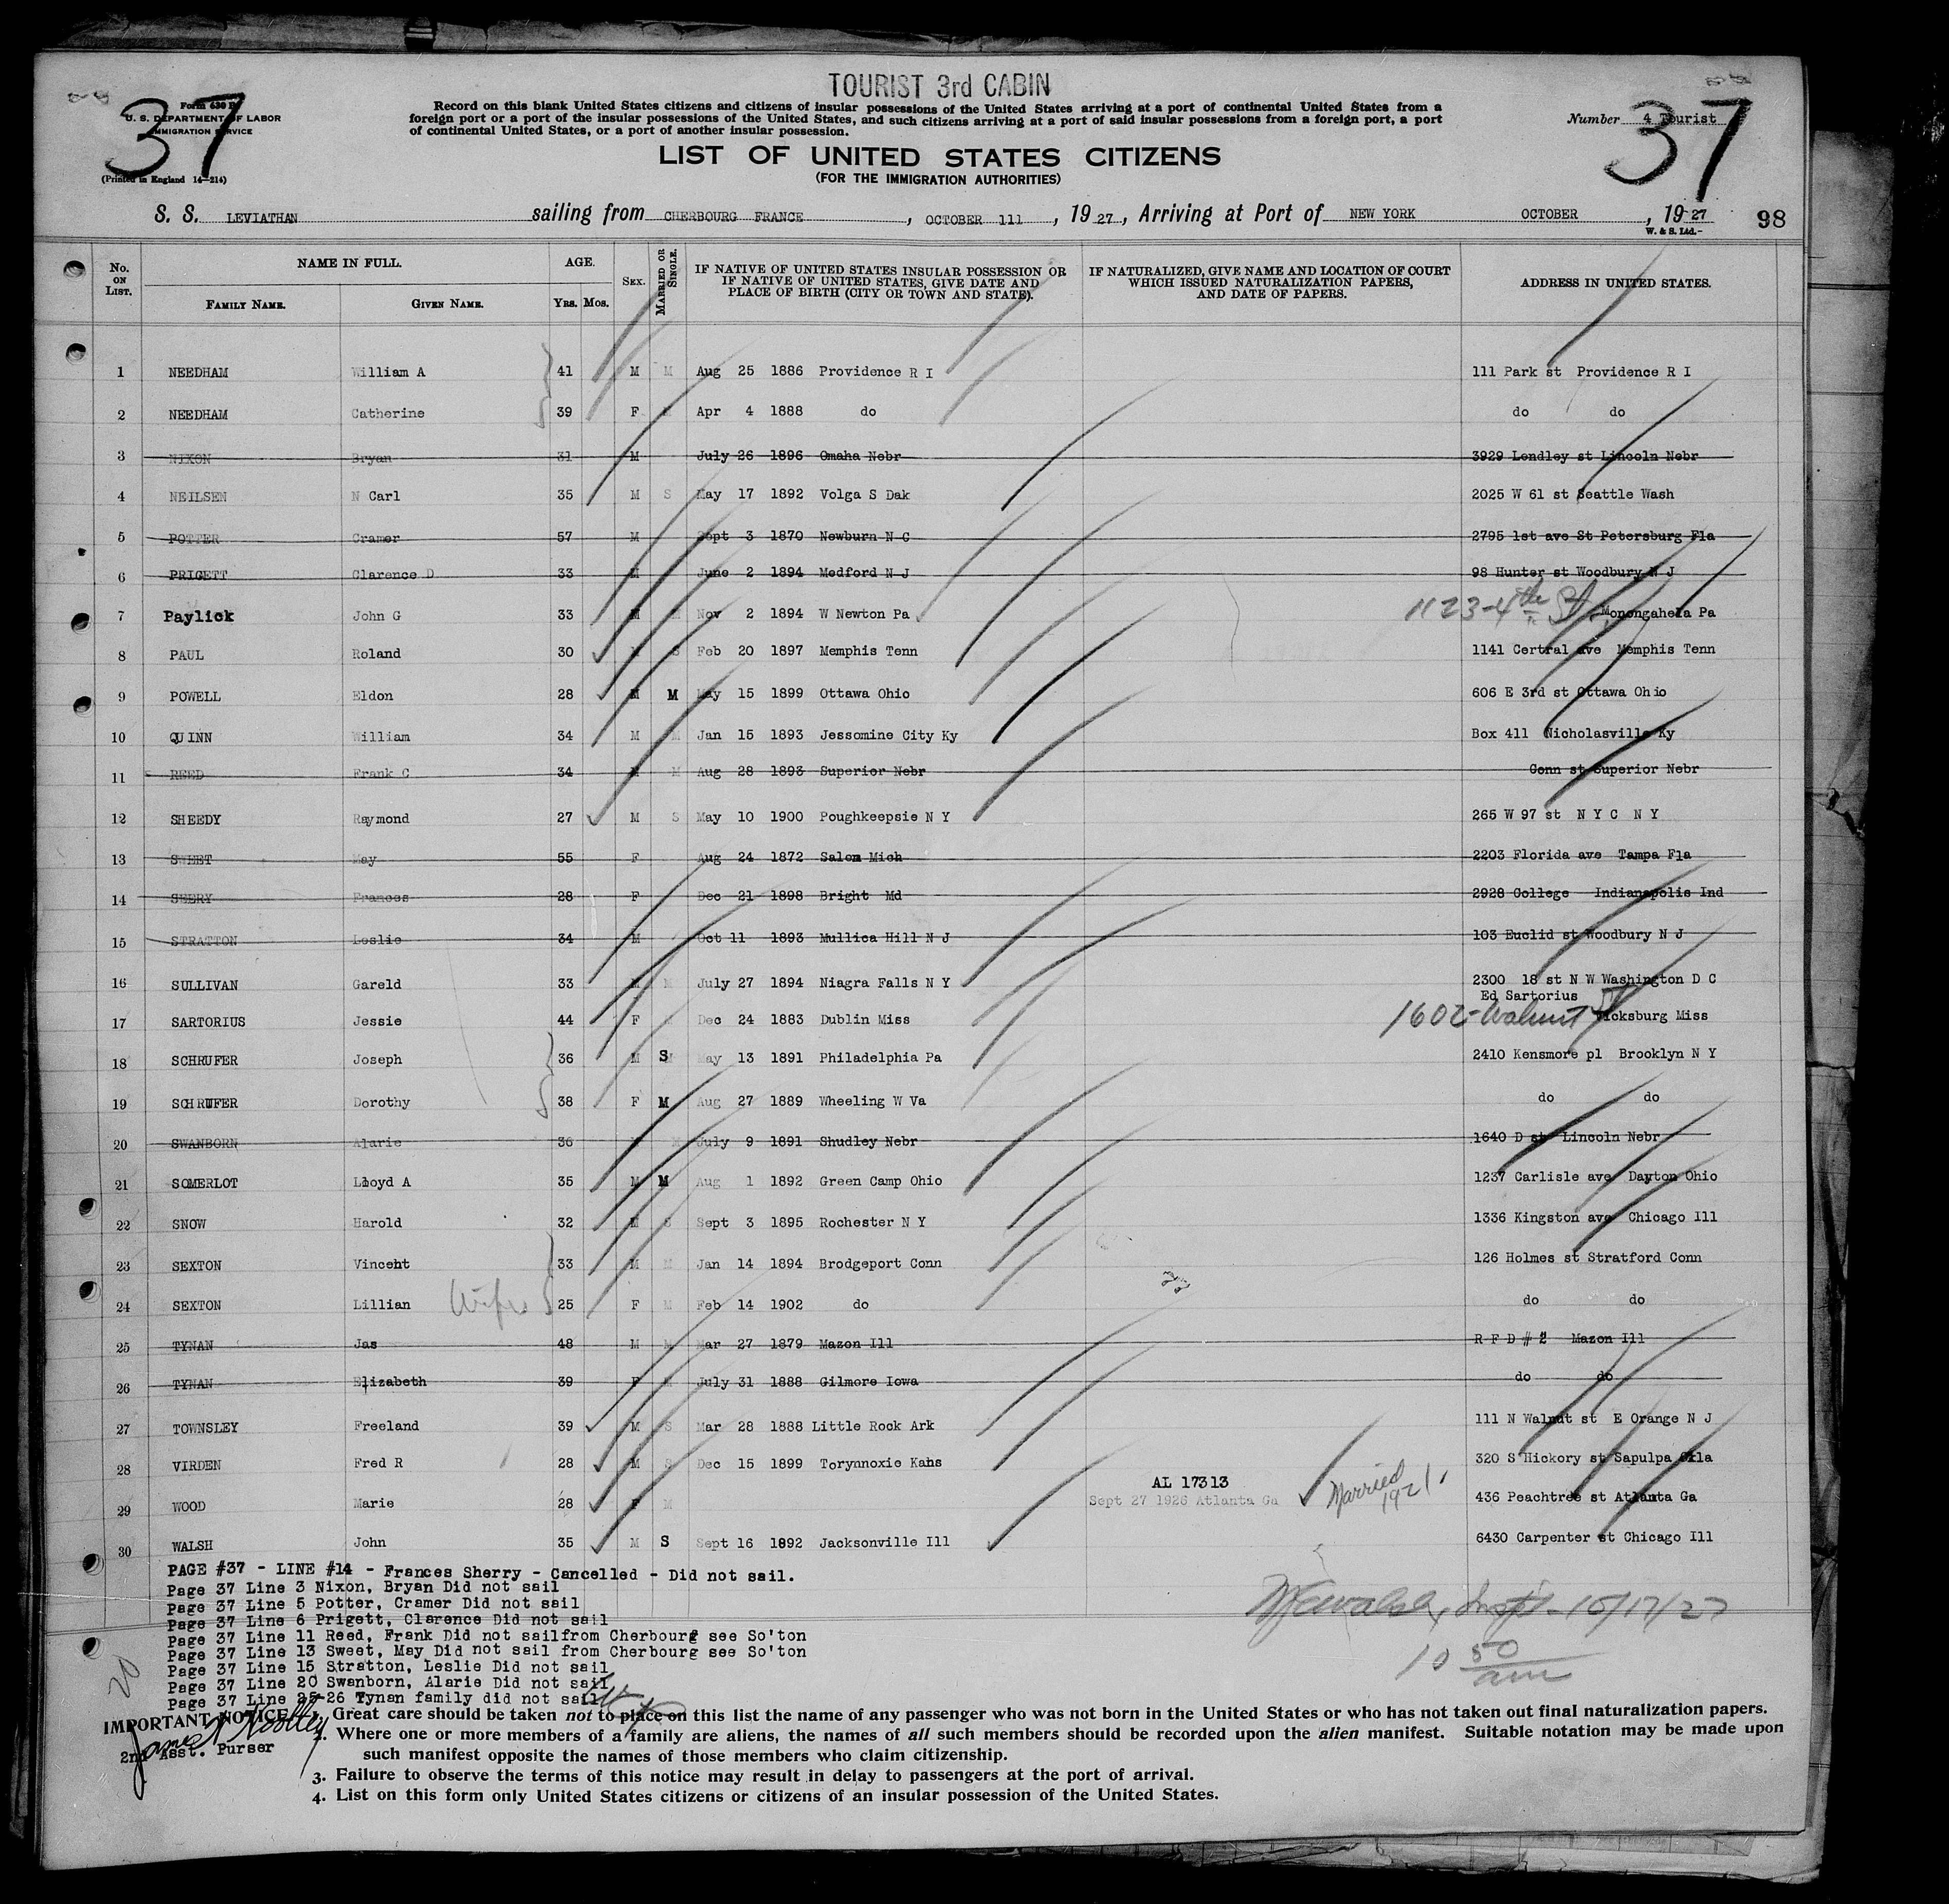 TOURIST 3rd CABIN
Form 630 B
U. S. DEPARTMENT OF LABOR
IMMIGRATION SERVICE
(Printed in England 14—214)
37
Record on this blank United States citizens and citizens of insular possessions of the United States arriving at a port of continental United States from a
foreign port or a port of the insular possessions of the United States, and such citizens arriving at a port of said insular possessions from a foreign port, a port
of continental United States, or a port of another insular possession.
Number 4 Tourist
37
LIST OF UNITED STATES CITIZENS
(FOR THE IMMIGRATION AUTHORITIES)
S. S. LEVIATHAN sailing from CHERBOURG FRANCE, OCTOBER 111, 1927, Arriving at Port of NEW YORK OCTOBER, 1927
W. & S. Ltd.-
98
No. ON LIST. NAME IN FULL. AGE. SEX. MARRIED OR SINGLE. IF NATIVE OF UNITED STATES INSULAR POSSESSION OR IF NATIVE OF UNITED STATES, GIVE DATE AND PLACE OF BIRTH (CITY OR TOWN AND STATE). IF NATURALIZED, GIVE NAME AND LOCATION OF COURT WHICH ISSUED NATURALIZATION PAPERS, AND DATE OF PAPERS. ADDRESS IN UNITED STATES.
FAMILY NAME. GIVEN NAME. YRS. MOS.
1 NEEDHAM William A 41 M M Aug 25 1886 Providence R I 111 Park st Providence R I
2 NEEDHAM Catherine 39 F Apr 4 1888 do do do
3 NIXON Bryan 31 M July 26 1896 Omaha Nebr 3929 Lendley st Lincoln Nebr
4 NEILSEN N Carl 35 M S May 17 1892 Volga S Dak 2025 W 61 st Seattle Wash
5 POTTER Cramer 57 M Sept 3 1870 Newburn N C 2795 1st ave St Petersburg Fla
6 PRIGETT Clarence D 33 M June 2 1894 Medford N J 98 Hunter st Woodbury N J
7 Paylick John G 33 M Nov 2 1894 W Newton Pa 1123-4th St. Monongahela Pa
8 PAUL Roland 30 M S Feb 20 1897 Memphis Tenn 1141 Certral ave Memphis Tenn
9 POWELL Eldon 28 M M May 15 1899 Ottawa Ohio 606 E 3rd st Ottawa Ohio
10 QUINN William 34 M M Jan 15 1893 Jessomine City Ky Box 411 Nicholasville Ky
11 REED Frank C 34 M M Aug 28 1893 Superior Nebr Conn st Superior Nebr
12 SHEEDY Raymond 27 M S May 10 1900 Poughkeepsie N Y 265 W 97 st N Y C N Y
13 SWEET May 55 F Aug 24 1872 Salem Mich 2203 Florida ave Tampa Fla
14 SHERY Frances 28 F Dec 21 1898 Bright Md 2928 College Indianapolis Ind
15 STRATTON Leslie 34 M Oct 11 1893 Mullica Hill N J 103 Euclid st Woodbury N J
16 SULLIVAN Gareld 33 M M July 27 1894 Niagra Falls N Y 2300 18 st N W Washington D C
Ed Sartorius
17 SARTORIUS Jessie 44 F Dec 24 1883 Dublin Miss 1602-Walnut St Vicksburg Miss
18 SCHRUFER Joseph 36 M S May 13 1891 Philadelphia Pa 2410 Kensmore pl Brooklyn N Y
19 SCHRUFER Dorothy 38 F M Aug 27 1889 Wheeling W Va do do
20 SWANBORN Alarie 36 M July 9 1891 Shudley Nebr 1640 D st Lincoln Nebr
21 SOMERLOT Lloyd A 35 M M Aug 1 1892 Green Camp Ohio 1237 Carlisle ave Dayton Ohio
22 SNOW Harold 32 M S Sept 3 1895 Rochester N Y 1336 Kingston ave Chicago Ill
23 SEXTON Vincent 33 M M Jan 14 1894 Brodgeport Conn 126 Holmes st Stratford Conn
24 SEXTON Lillian Wife 25 F M Feb 14 1902 do do do
25 TYNAN Jas 48 M M Mar 27 1879 Mazon Ill R F D # 2 Mazon Ill
26 TYNAN Elizabeth 39 F M July 31 1888 Gilmore Iowa do do
27 TOWNSLEY Freeland 39 M S Mar 28 1888 Little Rock Ark 111 N Walnut st E Orange N J
28 VIRDEN Fred R 28 M S Dec 15 1899 Torynnoxie Kans 320 S Hickory st Sapulpa Okla
AL 17313
29 WOOD Marie 28 F M Sept 27 1926 Atlanta Ga Married 1921. 436 Peachtree st Atlanta Ga
30 WALSH John 35 M S Sept 16 1892 Jacksonville Ill 6430 Carpenter st Chicago Ill
PAGE #37 - LINE #14 - Frances Sherry - Cancelled - Did not sail.
Page 37 Line 3 Nixon, Bryan Did not sail
Page 37 Line 5 Potter, Cramer Did not sail
Page 37 Line 6 Prigett, Clarence Did not sail
Page 37 Line 11 Reed, Frank Did not sailfrom Cherbourg see So'ton
Page 37 Line 13 Sweet, May Did not sail from Cherbourg see So'ton
Page 37 Line 15 Stratton, Leslie Did not sail
Page 37 Line 20 Swanborn, Alarie Did not sail
Page 37 Line 25-26 Tynan family did not sail
20
10/17/27
10 50 am
IMPORTANT NOTICE 1. Great care should be taken not to place on this list the name of any passenger who was not born in the United States or who has not taken out final naturalization papers.
2nd Asst. Purser
2. Where one or more members of a family are aliens, the names of all such members should be recorded upon the alien manifest. Suitable notation may be made upon
such manifest opposite the names of those members who claim citizenship.
3. Failure to observe the terms of this notice may result in delay to passengers at the port of arrival.
4. List on this form only United States citizens or citizens of an insular possession of the United States.